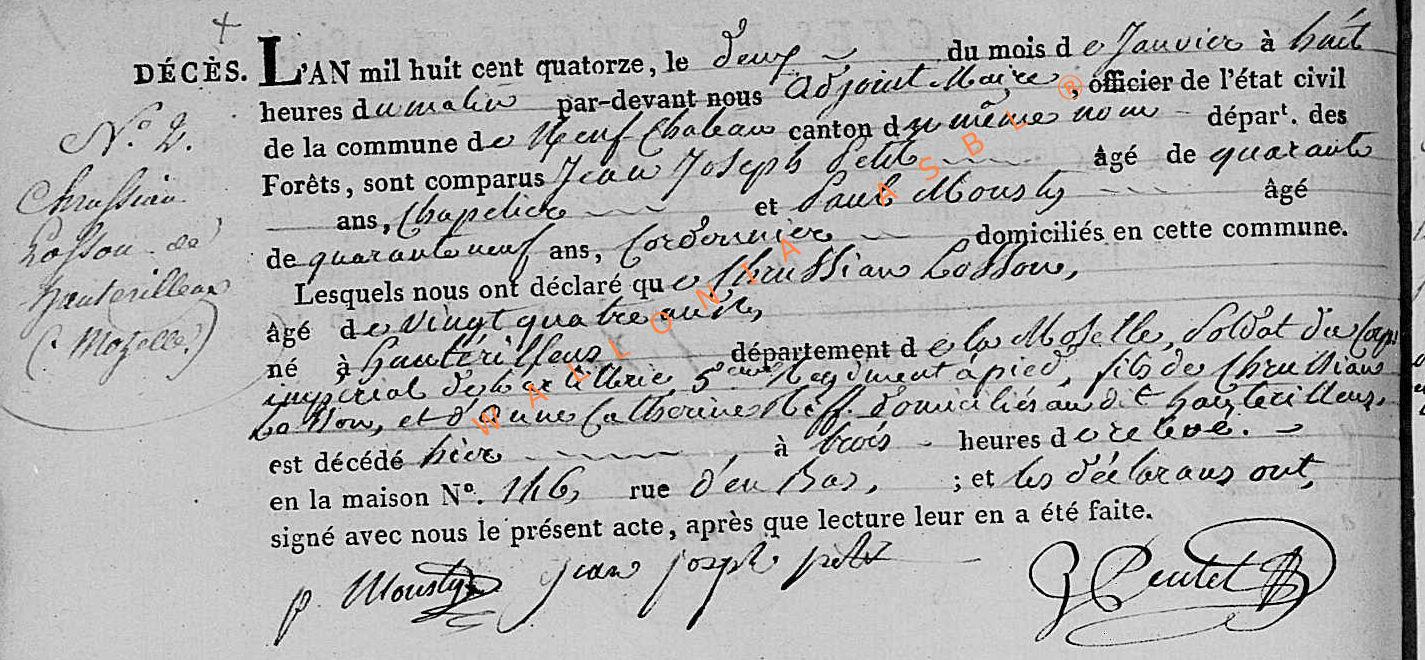 DÉCÈS. L'AN mil huit cent quatorze, le deux du mois de Janvier à huit
heures du matin par-devant nous adjoint Maire, officier de l'état civil
N.° 2. de la commune de Neufchateau canton du même nom départ. des
Forêts, sont comparus Jean Joseph Petit âgé de quarante
Chrissian ans, Chapelier et Paul Mousty âgé
Losson de de quaranteneuf ans, Cordonnier domiciliés en cette commune.
Lesquels nous ont déclaré que Chrissian Losson,
âgé de vingt quatre ans,
(Mozelle.) né à département de la Moselle, Soldat du Corps
imperial de l'artillerie 5eme Regiment à pied, fils de Chrissian
Losson, et d'anne Catherine domiciliés au dit
est décédé hier, à trois heures de relevé.
en la maison N°. 116, rue d'en Bas, ; et les déclarans ont,
signé avec nous le présent acte, après que lecture leur en a été faite.
p. Mousty jean joseph petit
WALLONIA ASBL ®